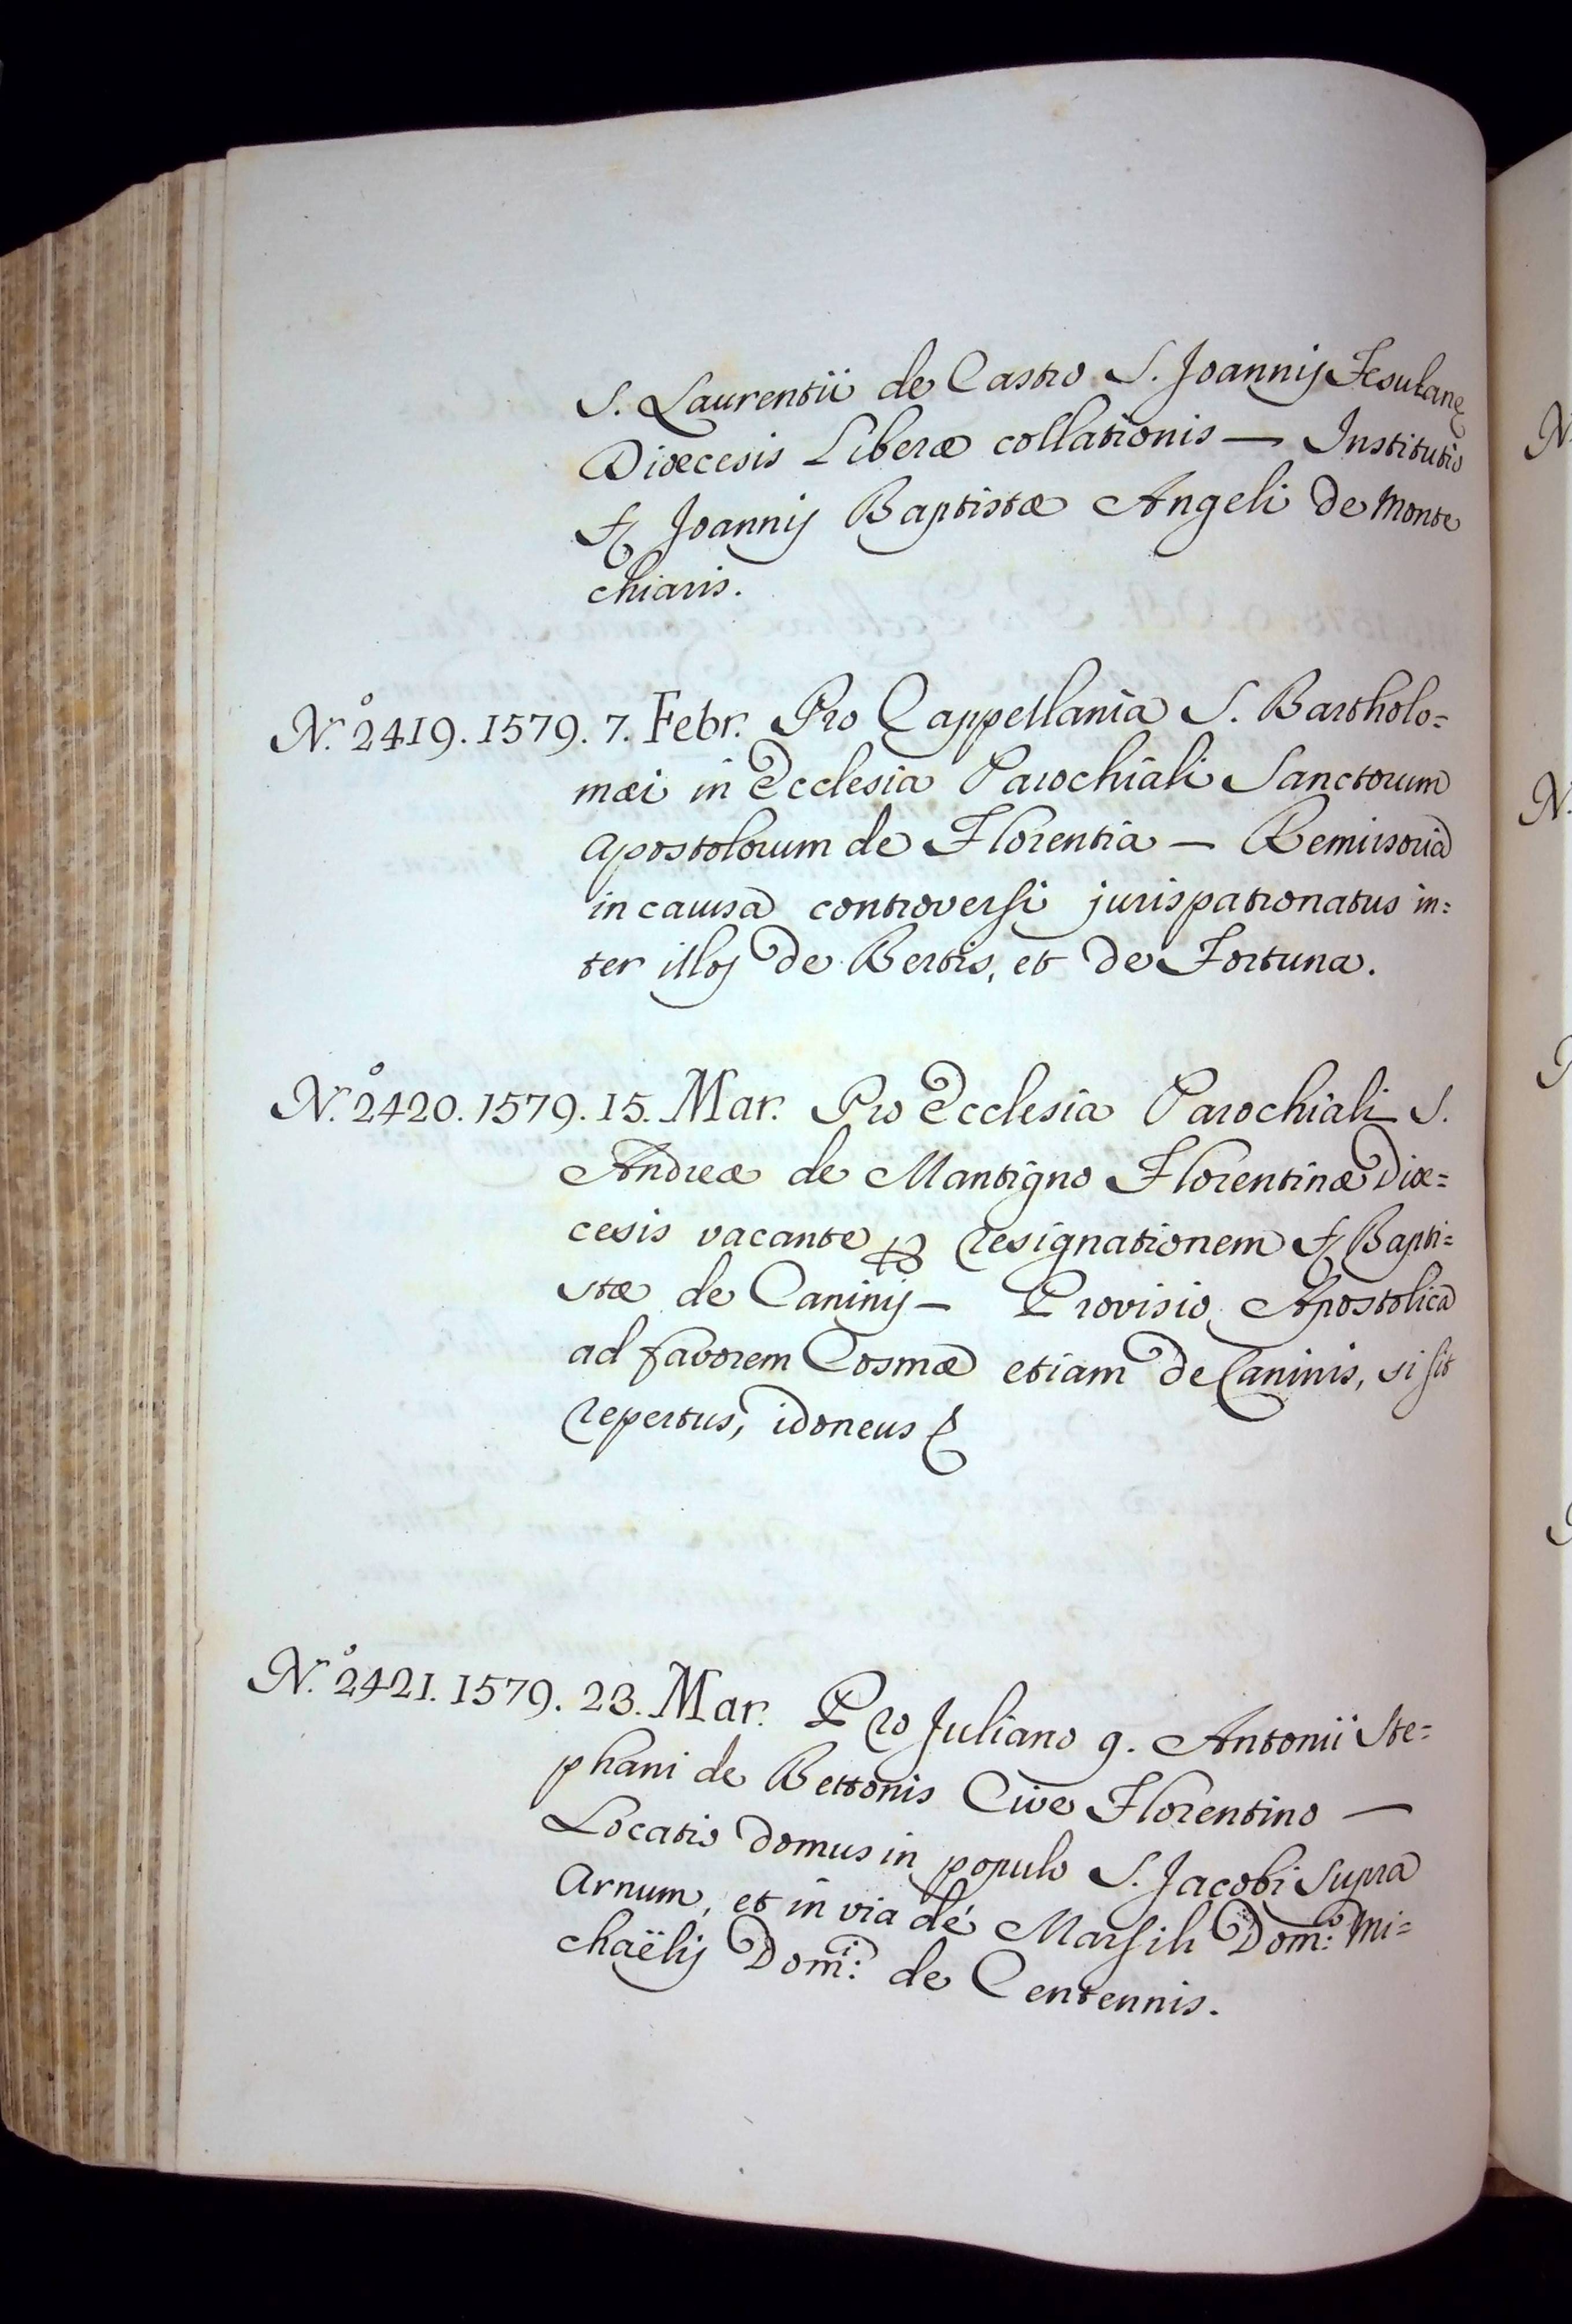 S. Laurentii de Castro S. Joannis Fesulanę
Diœcesis Liberæ collationis — Institutio
f. Joannis Baptistæ Angeli de Monte
chiaris.
N.° 2419. 1579. 7. Febr. Pro Cappellania S. Bartholo=
mæi in Ecclesia Parochiali Sanctorum
Apostolorum de Florentia — Remissoria
in causa controversi jurispatronatus in=
ter illos de Bertis, et de Fortuna.
N.° 2420. 1579. 15. Mar. Pro Ecclesia Parochiali S.
Andreæ de Mantigno Florentinæ Diœ=
cesis vacante p resignationem f. Bapti=
stæ de Caninis — Provisio Apostolica
ad favorem Cosmæ etiam de Caninis, si sit
repertus, idoneus &
N.° 2421. 1579. 23. Mar. Pro Juliano q. Antonii Ste=
phani de Bettonis Cive Florentino —
Locatio domus in populo S. Jacobi Supra
Arnum, et in via dé Marsili Dom:i Mi=
chaëlis Dom:i de Centennis.